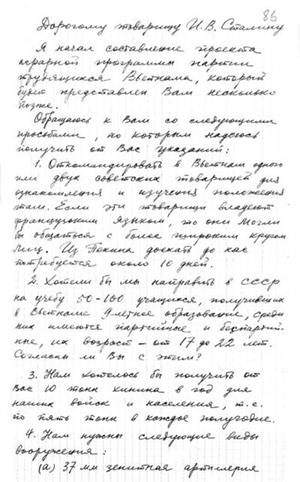 86
Дорогому товарищу И.В. Сталину
Я начал составление проекта
аграрной программы партии
трудящихся Вьетнама, который
будет представлен Вам несколько
позже.
Обращаюсь к Вам со следующими
просьбами, по которым надеюсь
получить от Вас указания:
1. Откомандировать в Вьетнам одного
или двух советских товарищей для
ознакомления и изучения положения
там. Если эти товарищи владеют
французским языком, то они могли
бы общаться с более широким кругом
лиц. Из Пекина доехать до нас
потребуется около 10 дней.
2. Хотели бы мы направить в СССР
на учебу 50-100 учащихся, получивших
в Вьетнаме 9-летнее образование, среди
них имеются партийные и беспартий-
ные, их возраст - от 17 до 22 лет.
Согласны ли Вы с этим?
3. Нам хотелось бы получить от
Вас 10 тонн хинина в год для
наших войск и населения, т.е.
по пять тонн в каждое полугодие.
4. Нам нужны следующие виды
вооружения:
(а) 37 мм зенитная артиллерия